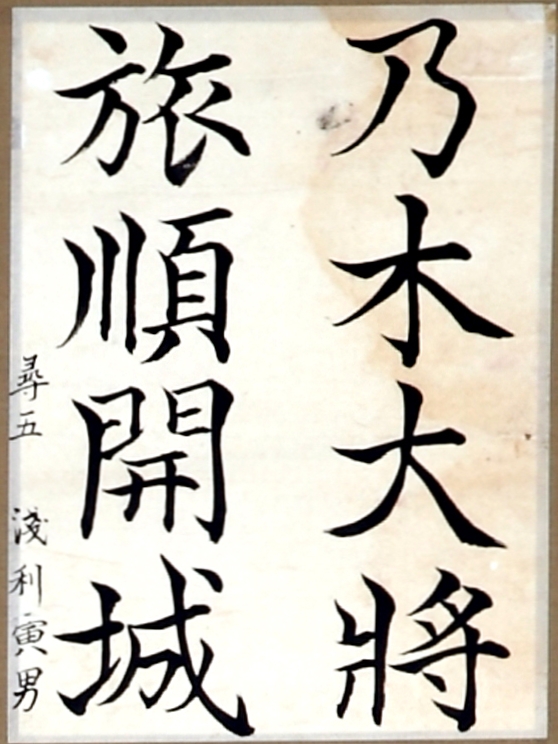 乃木大將
旅順開城
尋五 淺利寅男